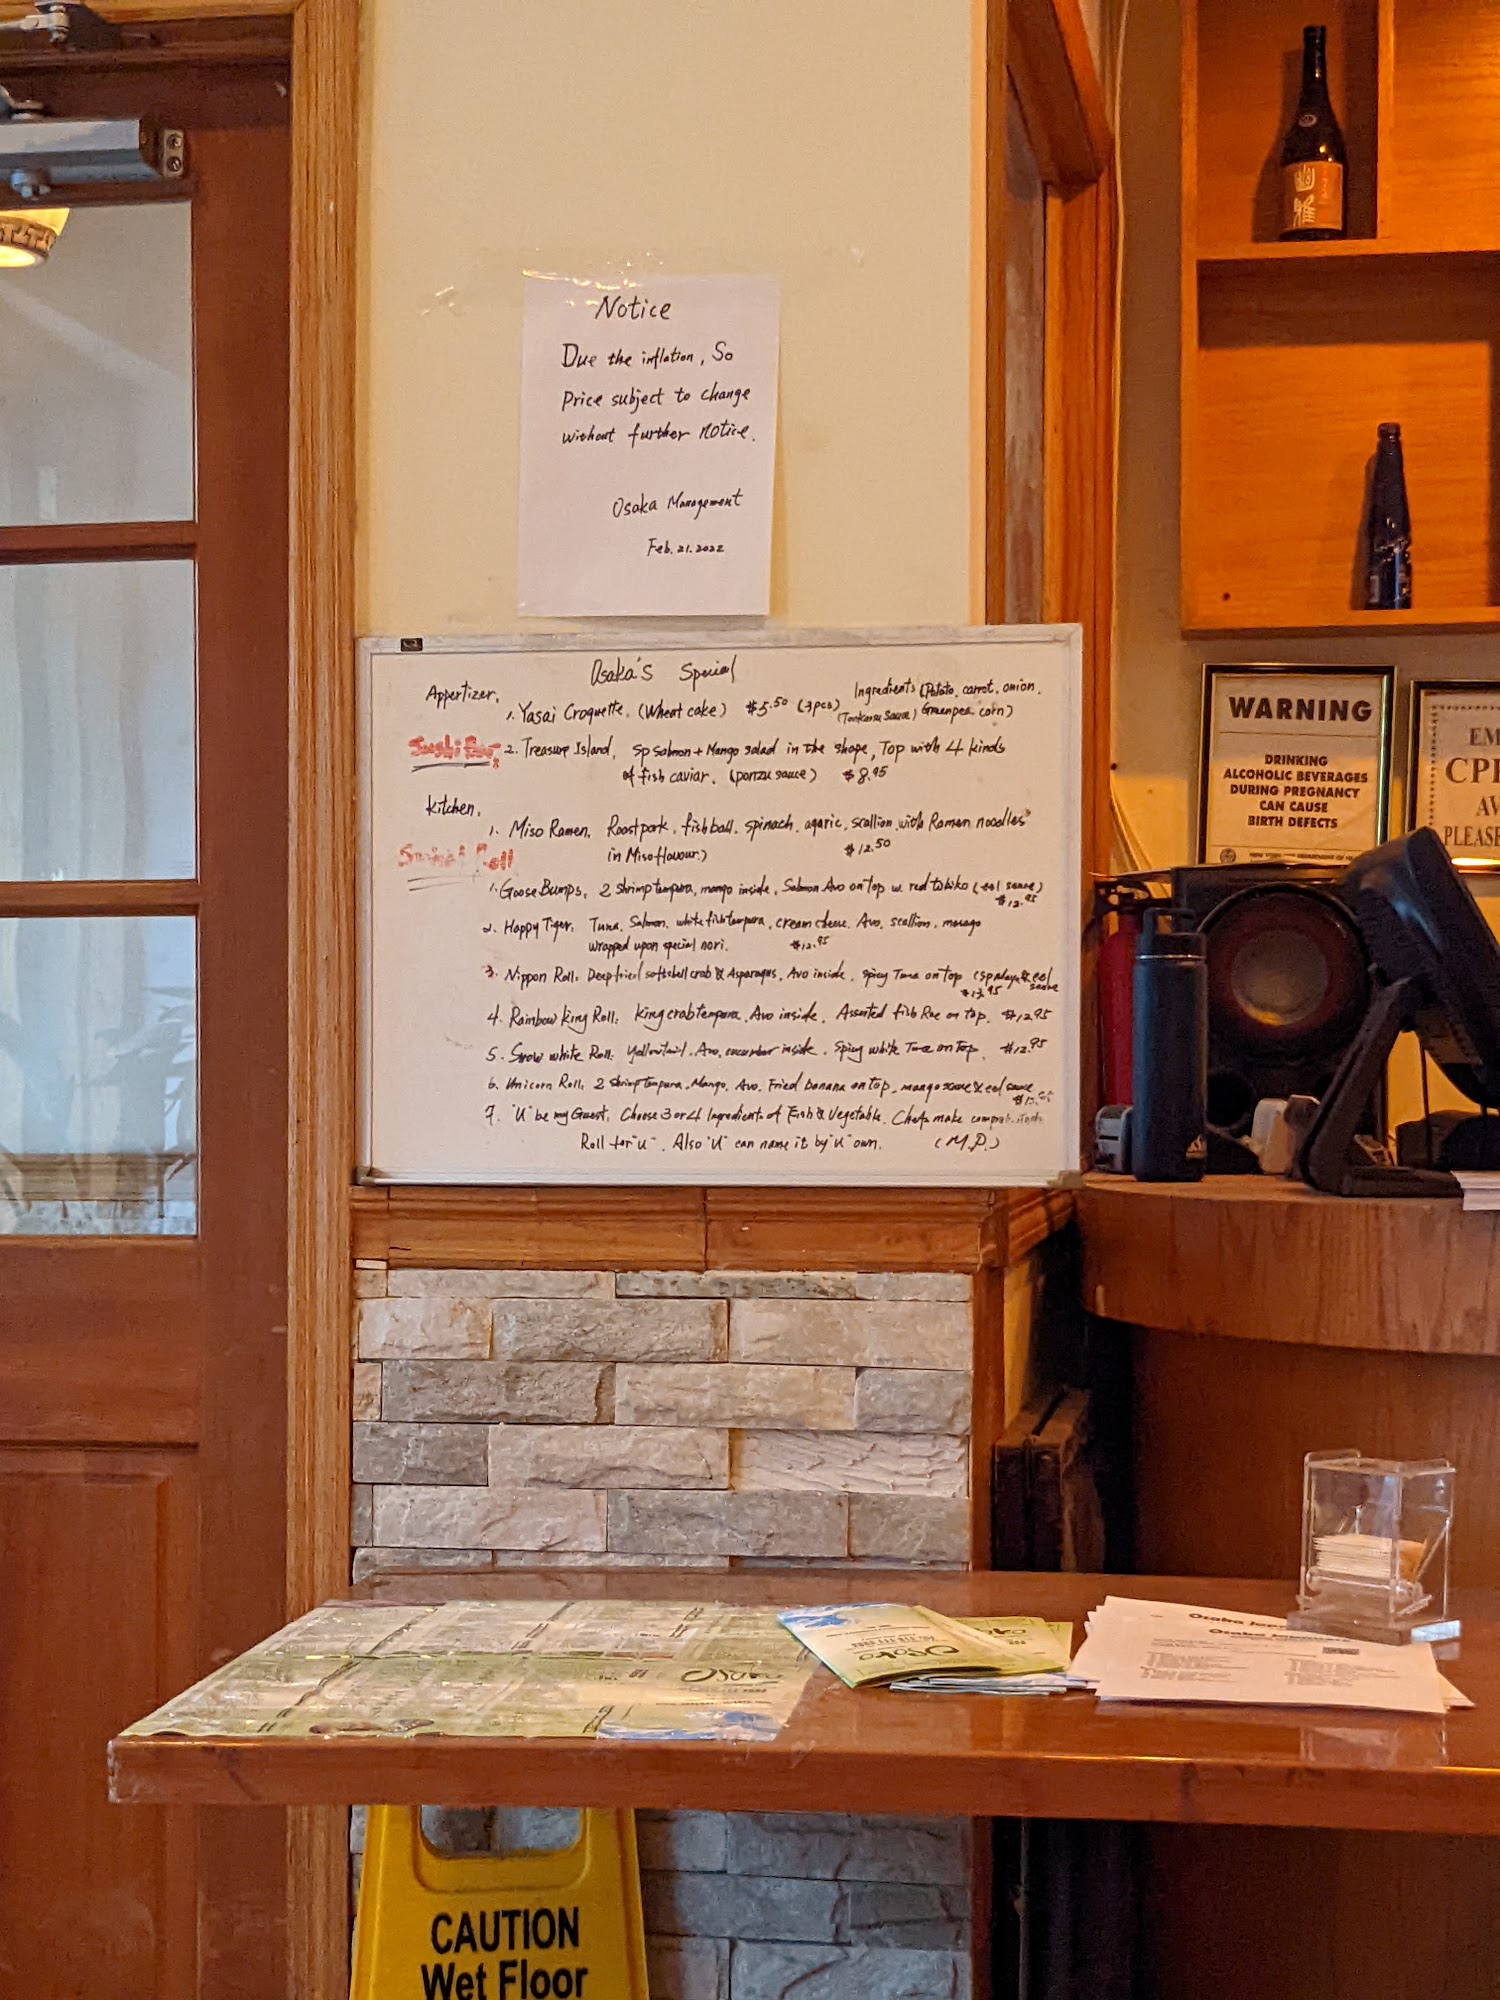 Notice
Due the inflation, So
Price subject to change
without further notice.
Osaka Management
Feb. 21. 2022
Osaka's Special
Appertizer,
1. Yasai Croquette, (Wheat cake) $5.50 (3pcs) Ingredients (Potato, carrot, onion,
(Tonkasu sauce) Greenpea, corn)
Sushi Bar, 2. Treasure Island, sp salmon + Mango salad in the shape, Top with 4 kinds
of fish caviar. (ponzu sauce) $8.95
Kitchen,
1. Miso Ramen, Roast pork, fishball, spinach, agaric, scallion, with Ramen noodles
in Miso flavour.) $12.50
Special Roll
1. Goose Bumps, 2 shrimp tempura, mango inside, Salmon Avo on top w. red tobiko (eel sauce)
$12.95
2. Happy Tiger, Tuna, Salmon, white fish tempura, cream cheese, Avo, scallion, masago
wrapped upon special nori. $12.95
3. Nippon Roll, Deep fried softshell crab & Asparagus, Avo inside, spicy Tuna on top (sp mayo & eel
sauce
$13.95
4. Rainbow King Roll, King crab tempura, Avo inside, Assorted fish Roe on top. $12.95
5. Snow white Roll, Yellowtail, Avo, cucumber inside, Spicy white Tuna on top. $12.95
6. Unicorn Roll, 2 shrimp tempura, Mango, Avo, Fried banana on top, mango sauce & eel sauce
7. "U" be my Guest, Choose 3 or 4 Ingredients of Fish & Vegetable, Chefs make
Roll for "U". Also "U" can name it by "U" own. (M.P.)
WARNING
DRINKING
ALCOHOLIC BEVERAGES
DURING PREGNANCY
CAN CAUSE
BIRTH DEFECTS
EM
CP
AV
PLEASE
山
雅
Osaka
Osaka
CAUTION
Wet Floor